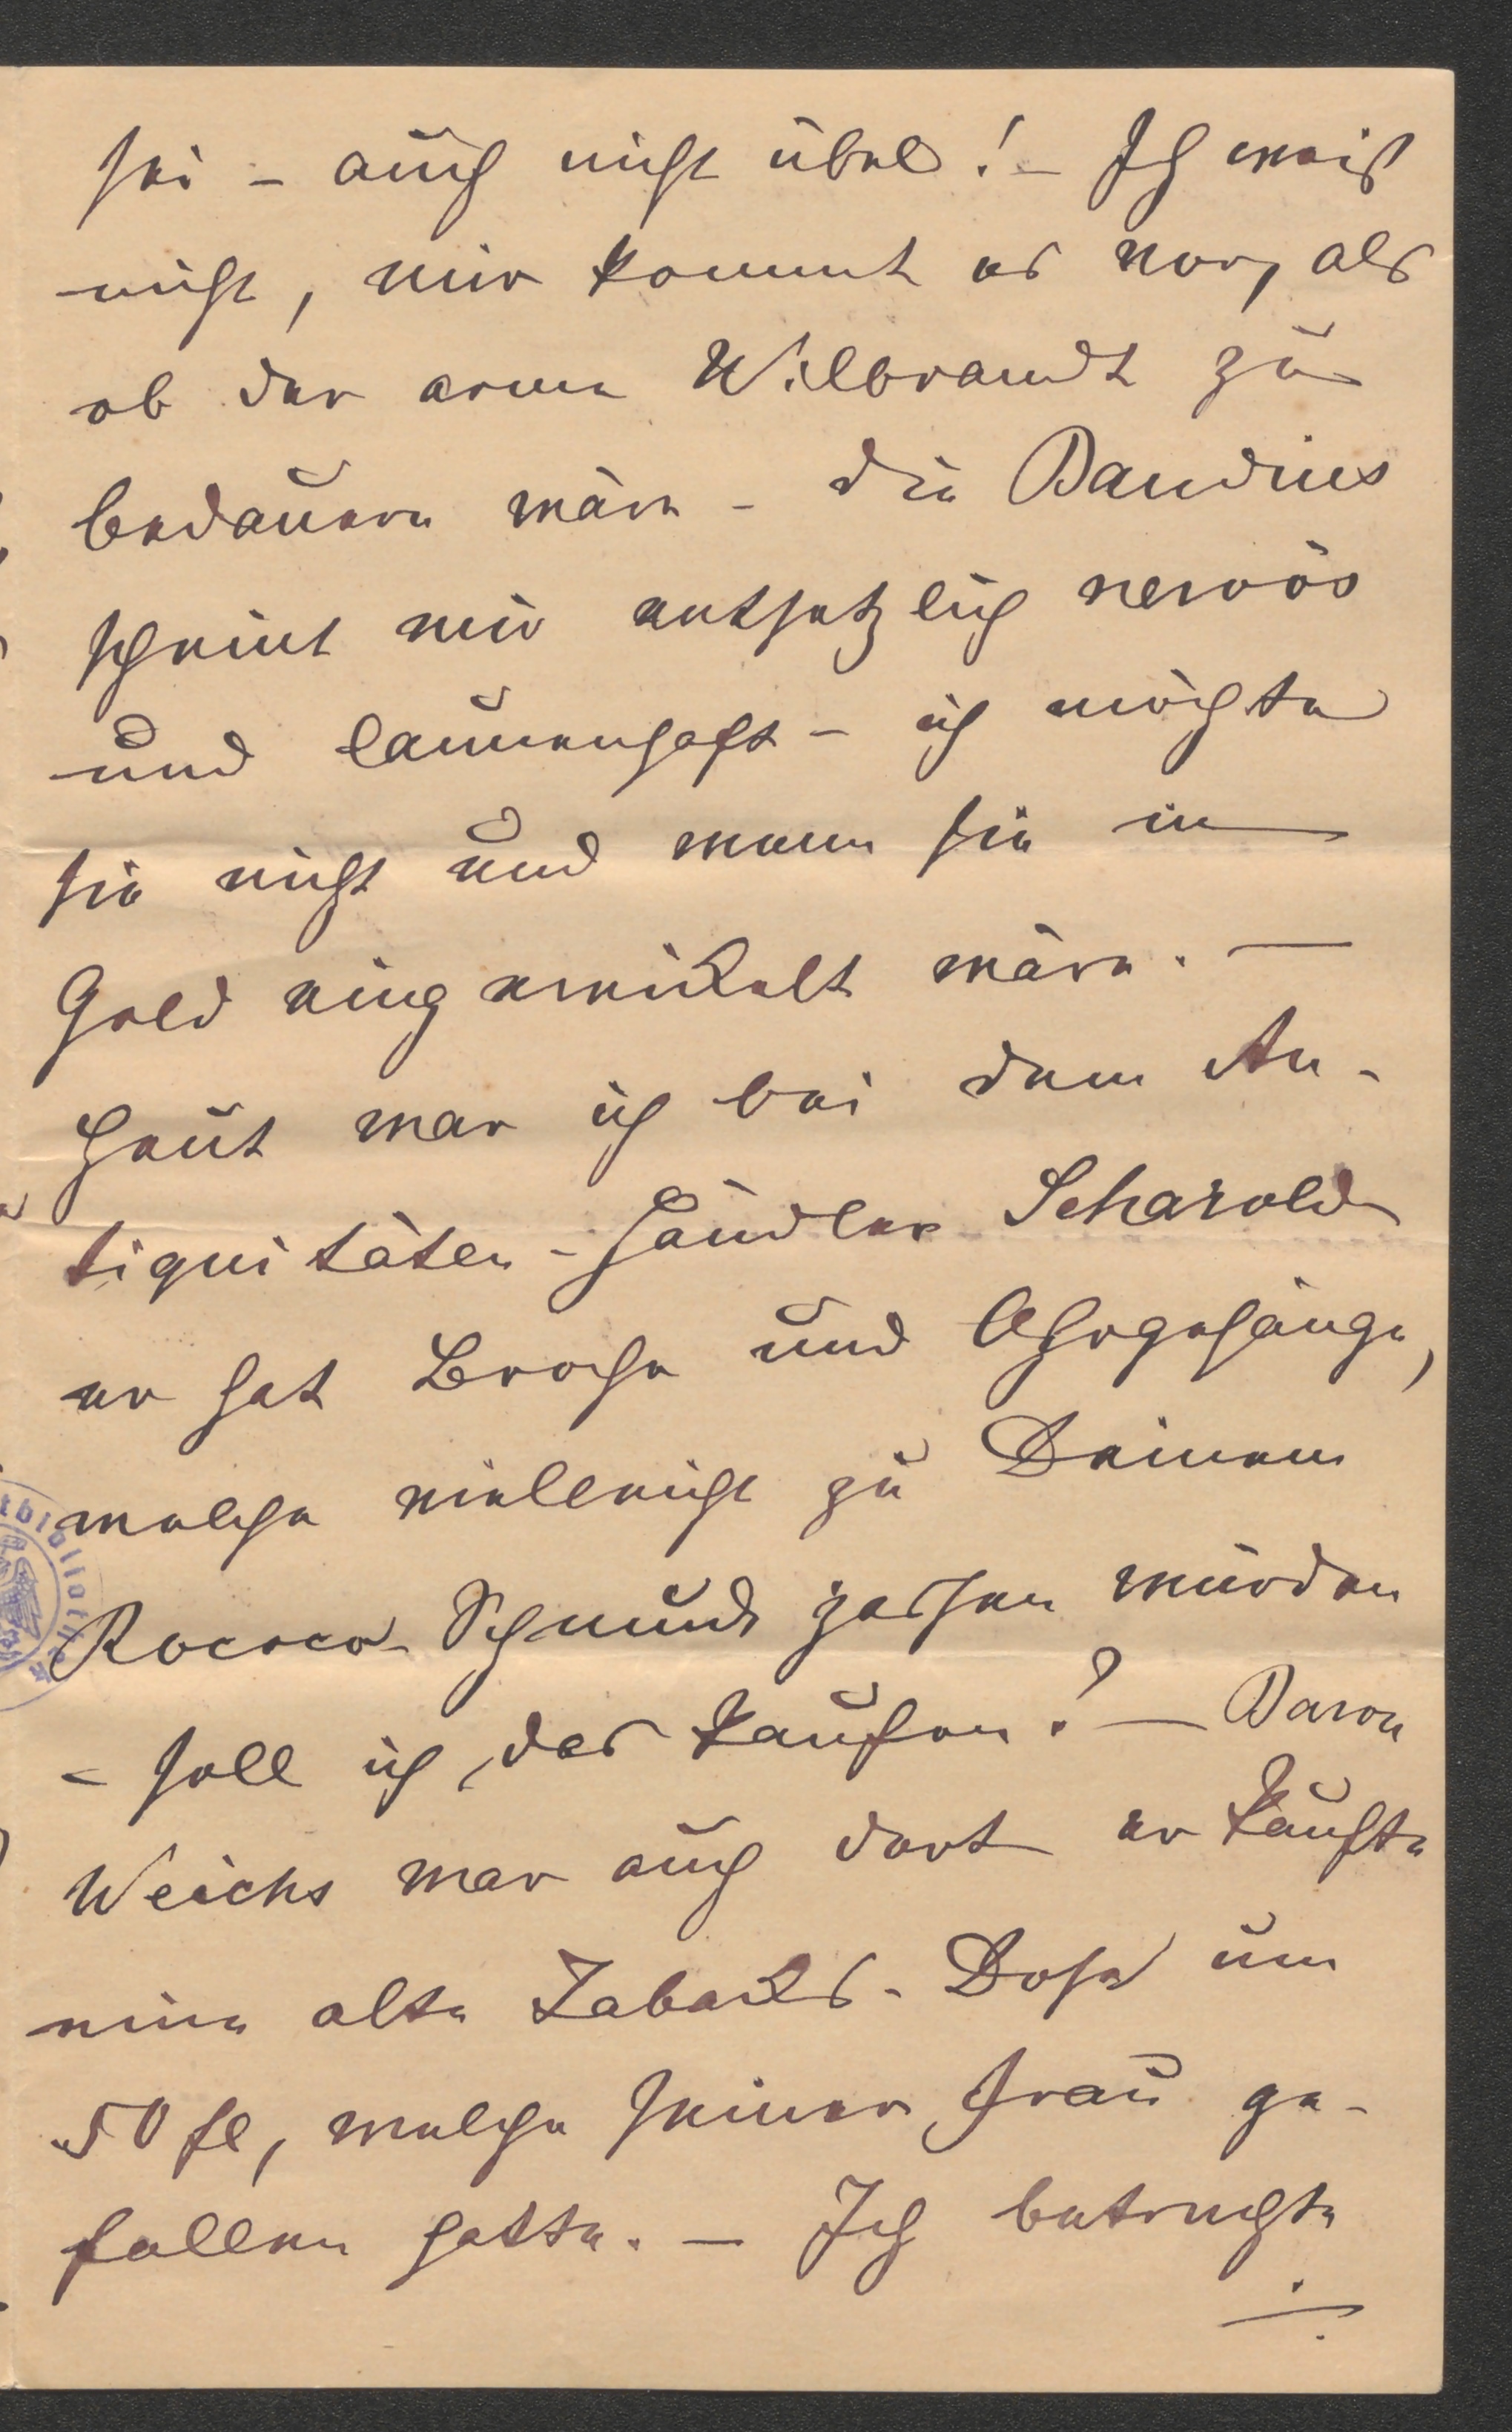 sei – auch nicht übel! – Ich weiß
nicht, mir kommt es vor, als
ob der arme Wilbrandt zu
bedauern wäre – die Baudius
scheint mir entsetzlich nervös
und launenhaft – ich möchte
sie nicht und wenn sie in
Gold eingewickelt wäre. —
Heut war ich bei dem An-
tiquitäten-Händler Scharold
er hat Broche und Ohrgehänge,
welche vielleicht zu Deinem
Rococo-Schmuck passen würden
– soll ich das kaufen? — Baron
Weichs war auch dort er kaufte
eine alte Tabacks-Dose um
50 fl, welche seiner Frau ge-
fallen hatte. – Ich betrachte